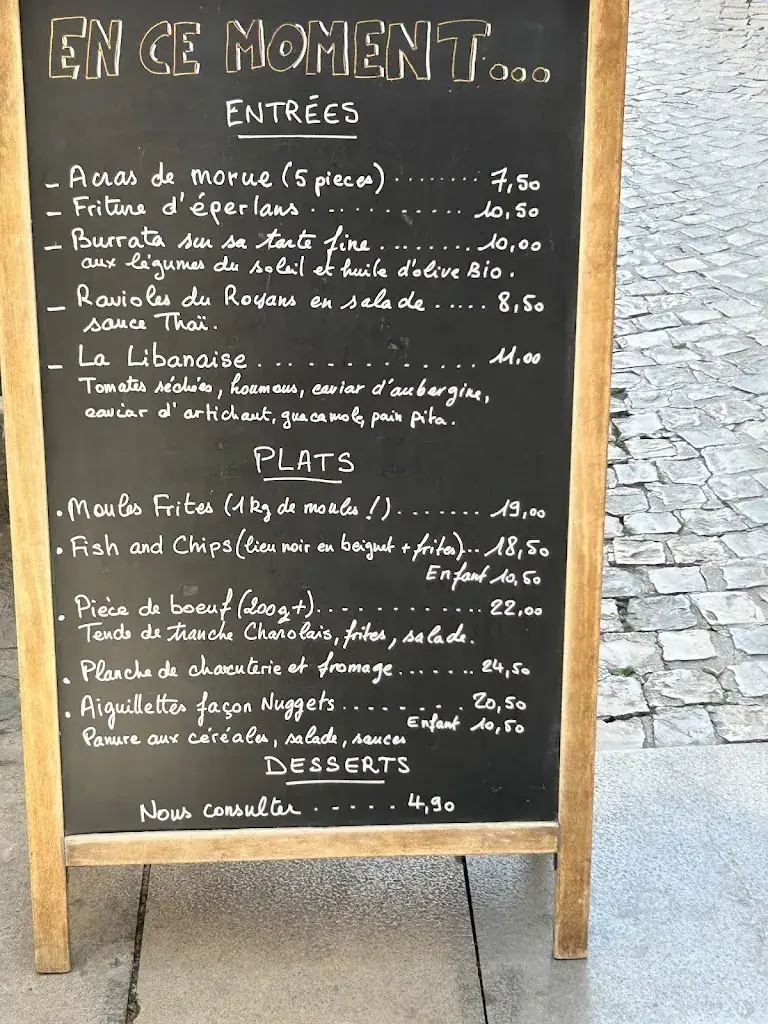 EN CE MOMENT...
ENTRÉES
- Acras de morue (5 pieces) ........ 7,50
- Friture d'éperlans ............ 10,50
- Burrata sur sa tarte fine ........ 10,00
aux légumes du soleil et huile d'olive Bio.
- Ravioles du Royans en salade ..... 8,50
sauce Thaï.
- La Libanaise ............. 11.00
Tomates séchées, houmous, caviar d'aubergine,
caviar d'artichaut, guacamole, pain pita.
PLATS
. Moules Frites (1kg de moules !) ....... 19,00
. Fish and Chips (lieu noir en beignet + frites)... 18,50
Enfant 10,50
. Pièce de boeuf (200g+) ............ 22,00
Tende de tranche Charolais, frites, salade.
. Planche de charcuterie et fromage ....... 24,50
. Aiguillettes façon Nuggets ........ 20,50
Enfant 10,50
Panure aux céréales, salade, sauces
DESSERTS
Nous consulter ..... 4,90